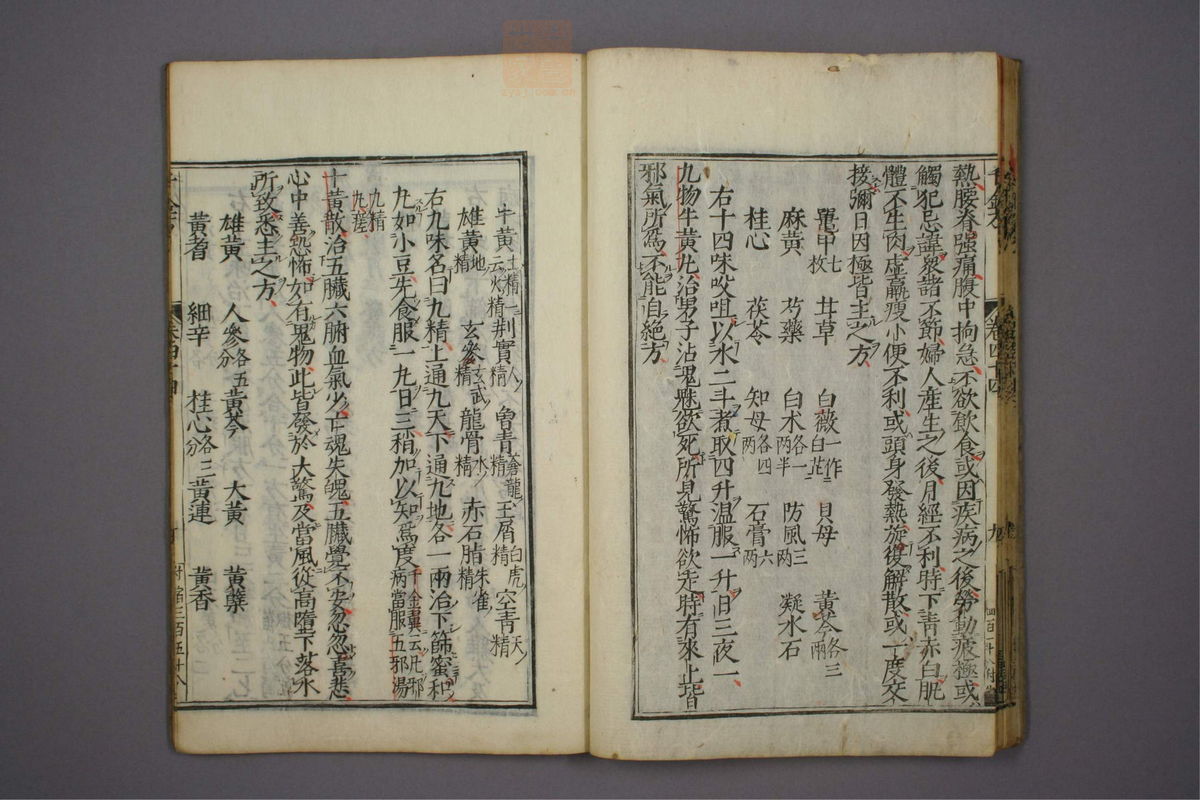 熱腰脊強痛腹中拘急不欲飲食或因疾病之後勞動疲極或
觸犯忌諱衆諸不節婦人産生之後月經不利時下青赤白肥
體不生肉虛羸瘦小便不利或頭身發熱旋復解散或一度交
接彌日困極皆主之方
鼈甲七枚 甘草 白薇一作白芷 貝母 黃芩各三兩
麻黃 芍藥 白朮各一兩半 防風三兩 凝水石
桂心 茯苓 知母各四兩 石膏六兩
右十四味㕮咀以水二斗煮取四升温服一升日三夜一
九物牛黃丸治男子沾鬼魅欲死所見驚怖欲走時有來止皆
邪氣所爲不能自絕方
牛黃土精一云火精 荆實人精 曾青蒼龍精 玉屑白虎精 空青天精
雄黃地精 玄參玄武精 龍骨水精 赤石脂朱雀精
右九味名曰九精上通九天下通九地各一兩治下篩蜜和
丸如小豆先食服一丸日三稍加以知爲度千金翼云凡邪病當服五邪湯
九精丸瘥
十黃散治五臟六腑血氣少亡魂失魄五臟覺不安忽忽喜悲
心中善恐怖如有鬼物此皆發於大驚及當風從高墮下落水
所致悉主之方
雄黃 人參各五分 黃芩 大黃 黃蘗
黃耆 細辛 桂心各三分 黃連 黃香